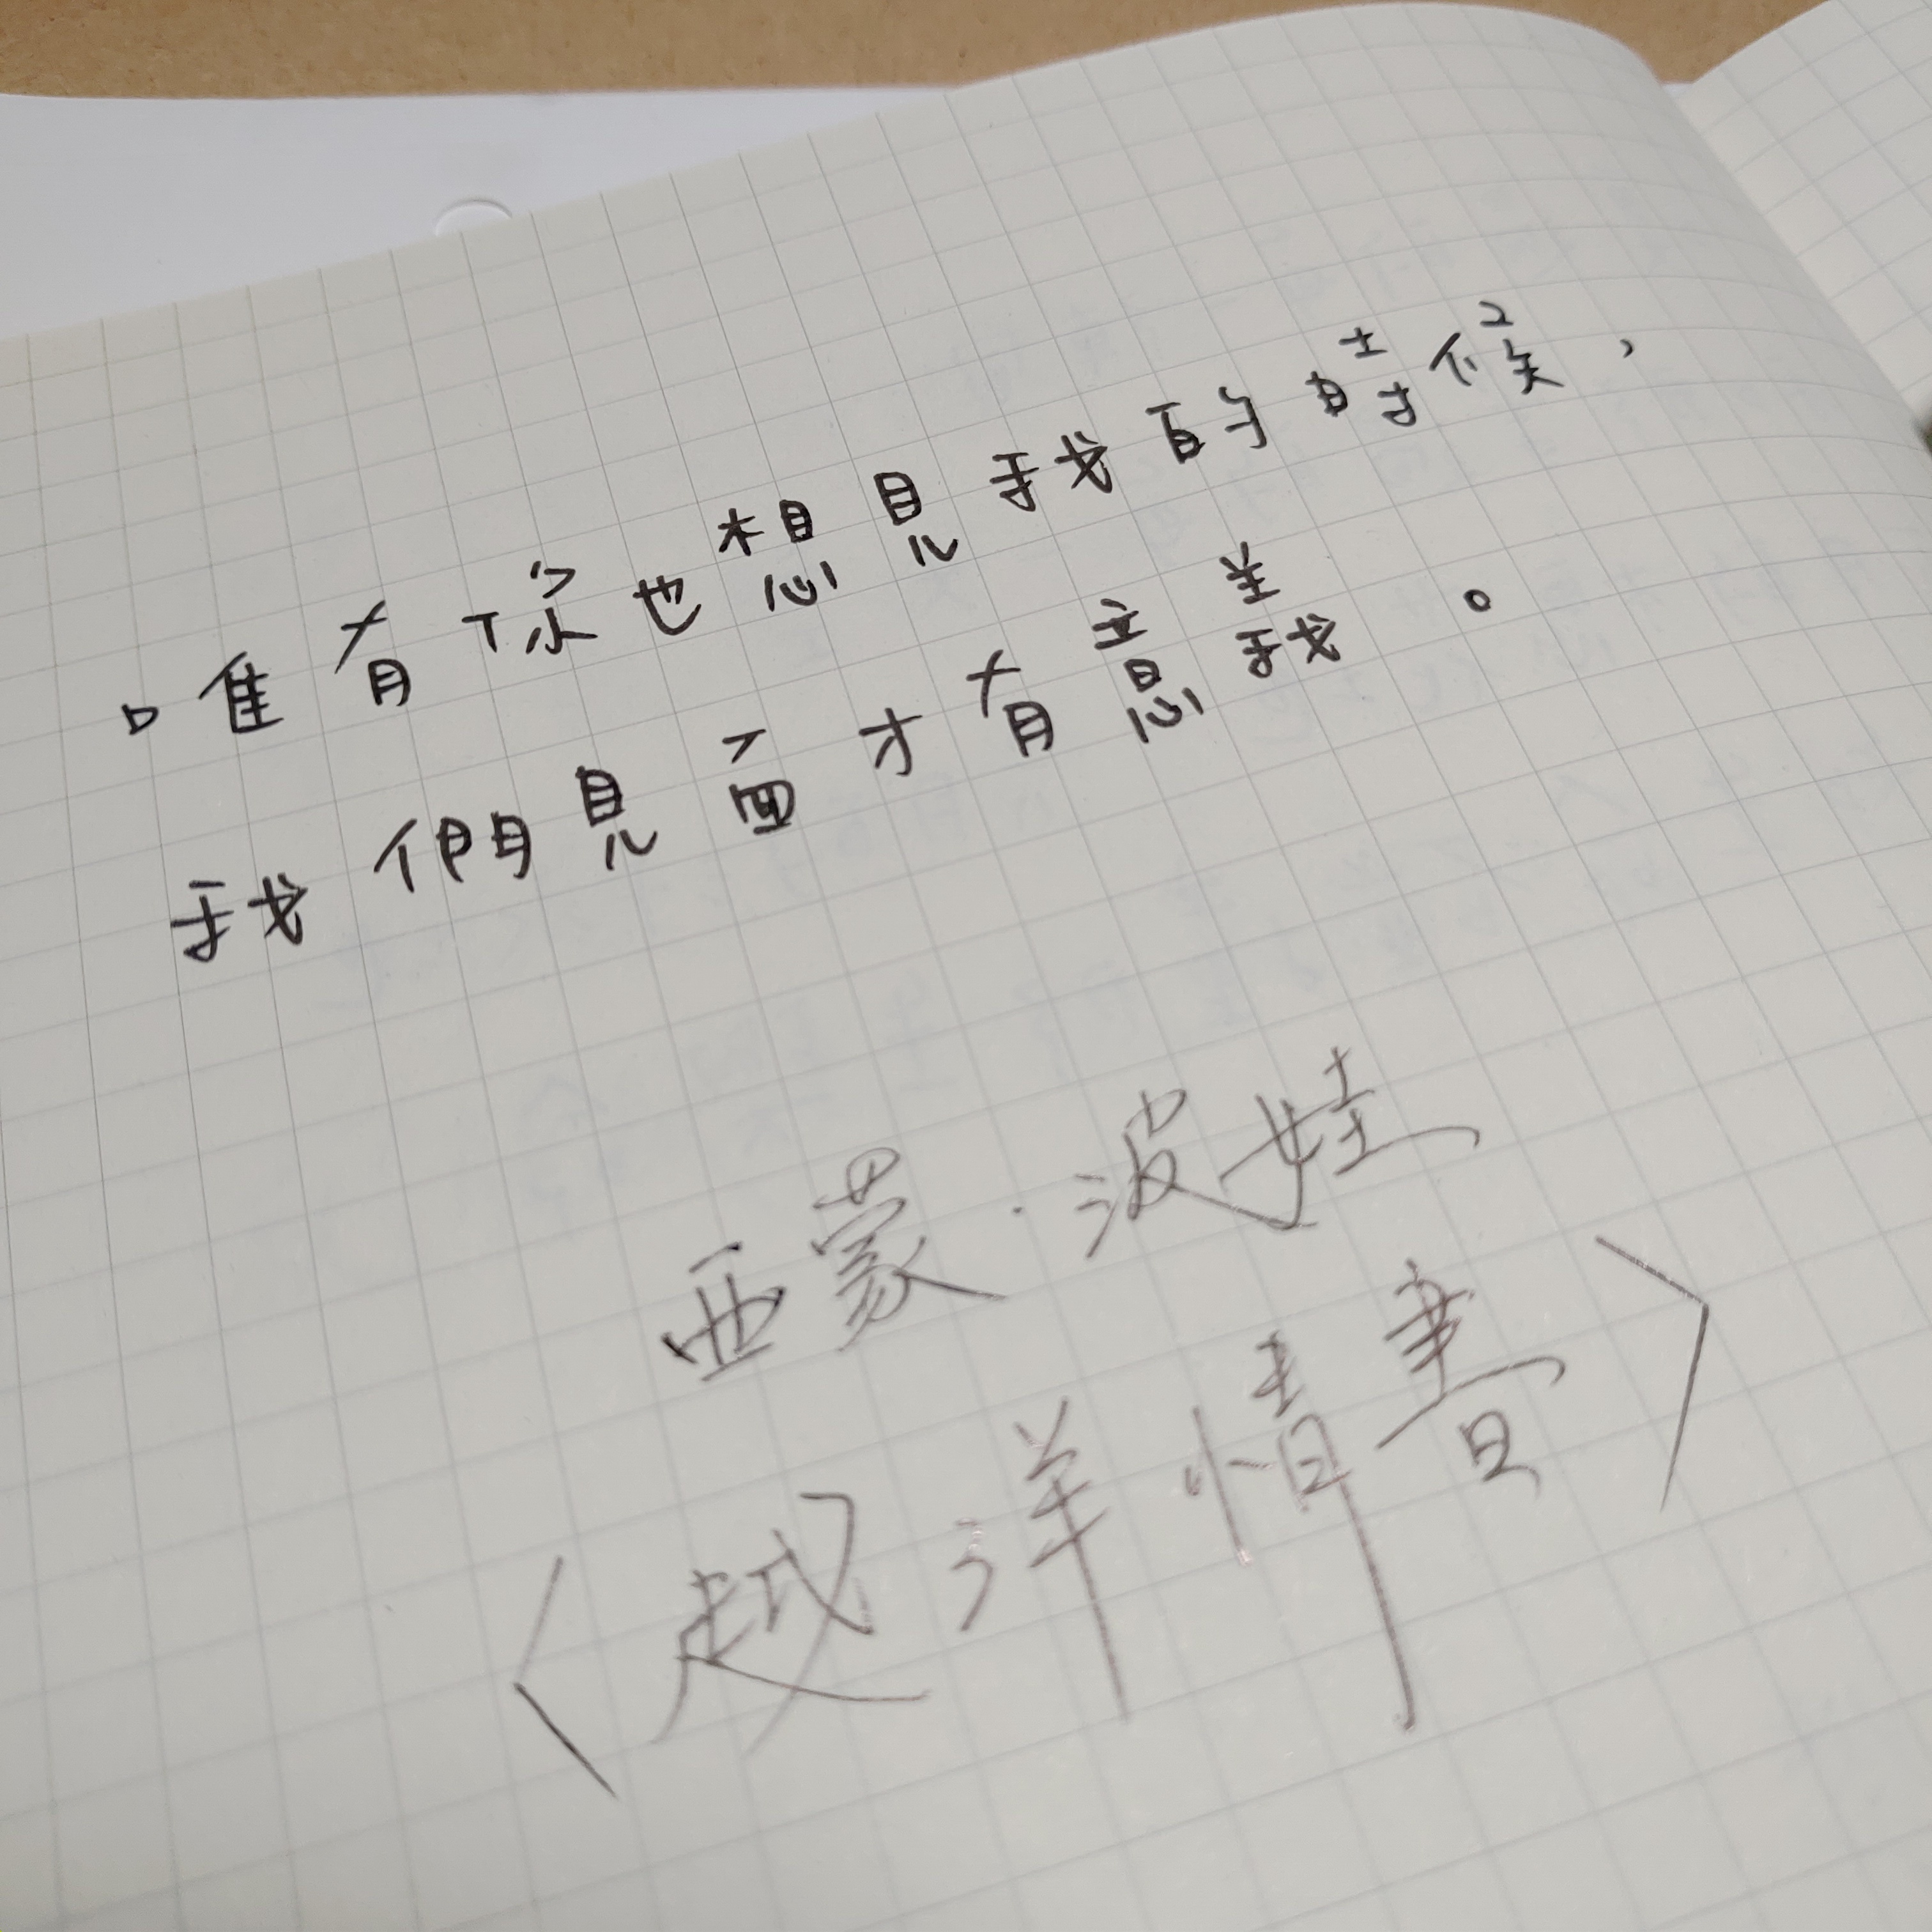 唯有你也想見我的時候，
我們見面才有意義。
西蒙·波娃
〈越洋情書〉